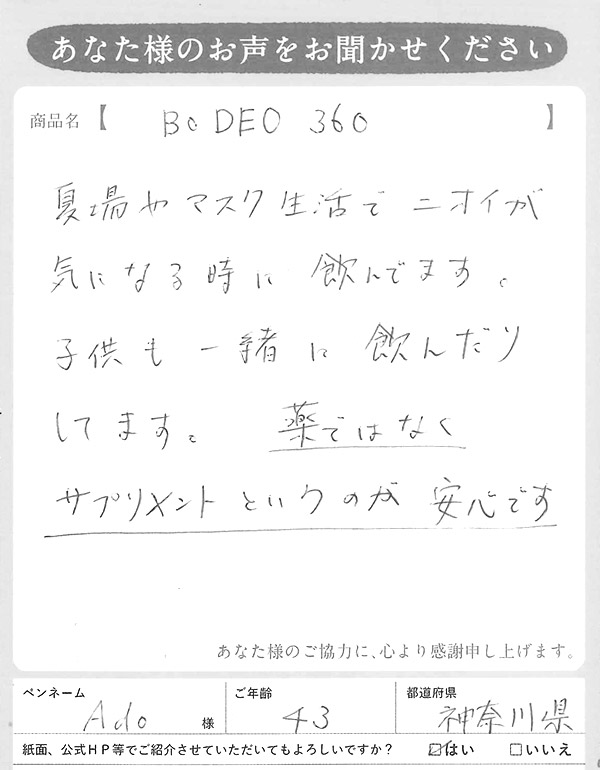 あなた様のお声をお聞かせください
商品名【 BoDEO 360 】
夏場やマスク生活でニオイが
気になる時に飲んでます。
子供も一緒に飲んだり
してます。薬ではなく
サプリメントというのが安心です
あなた様のご協力に、心より感謝申し上げます。
ペンネーム ご年齢 都道府県
Ado 様 43 神奈川県
紙面、公式HP等でご紹介させていただいてもよろしいですか? ☑はい □いいえ